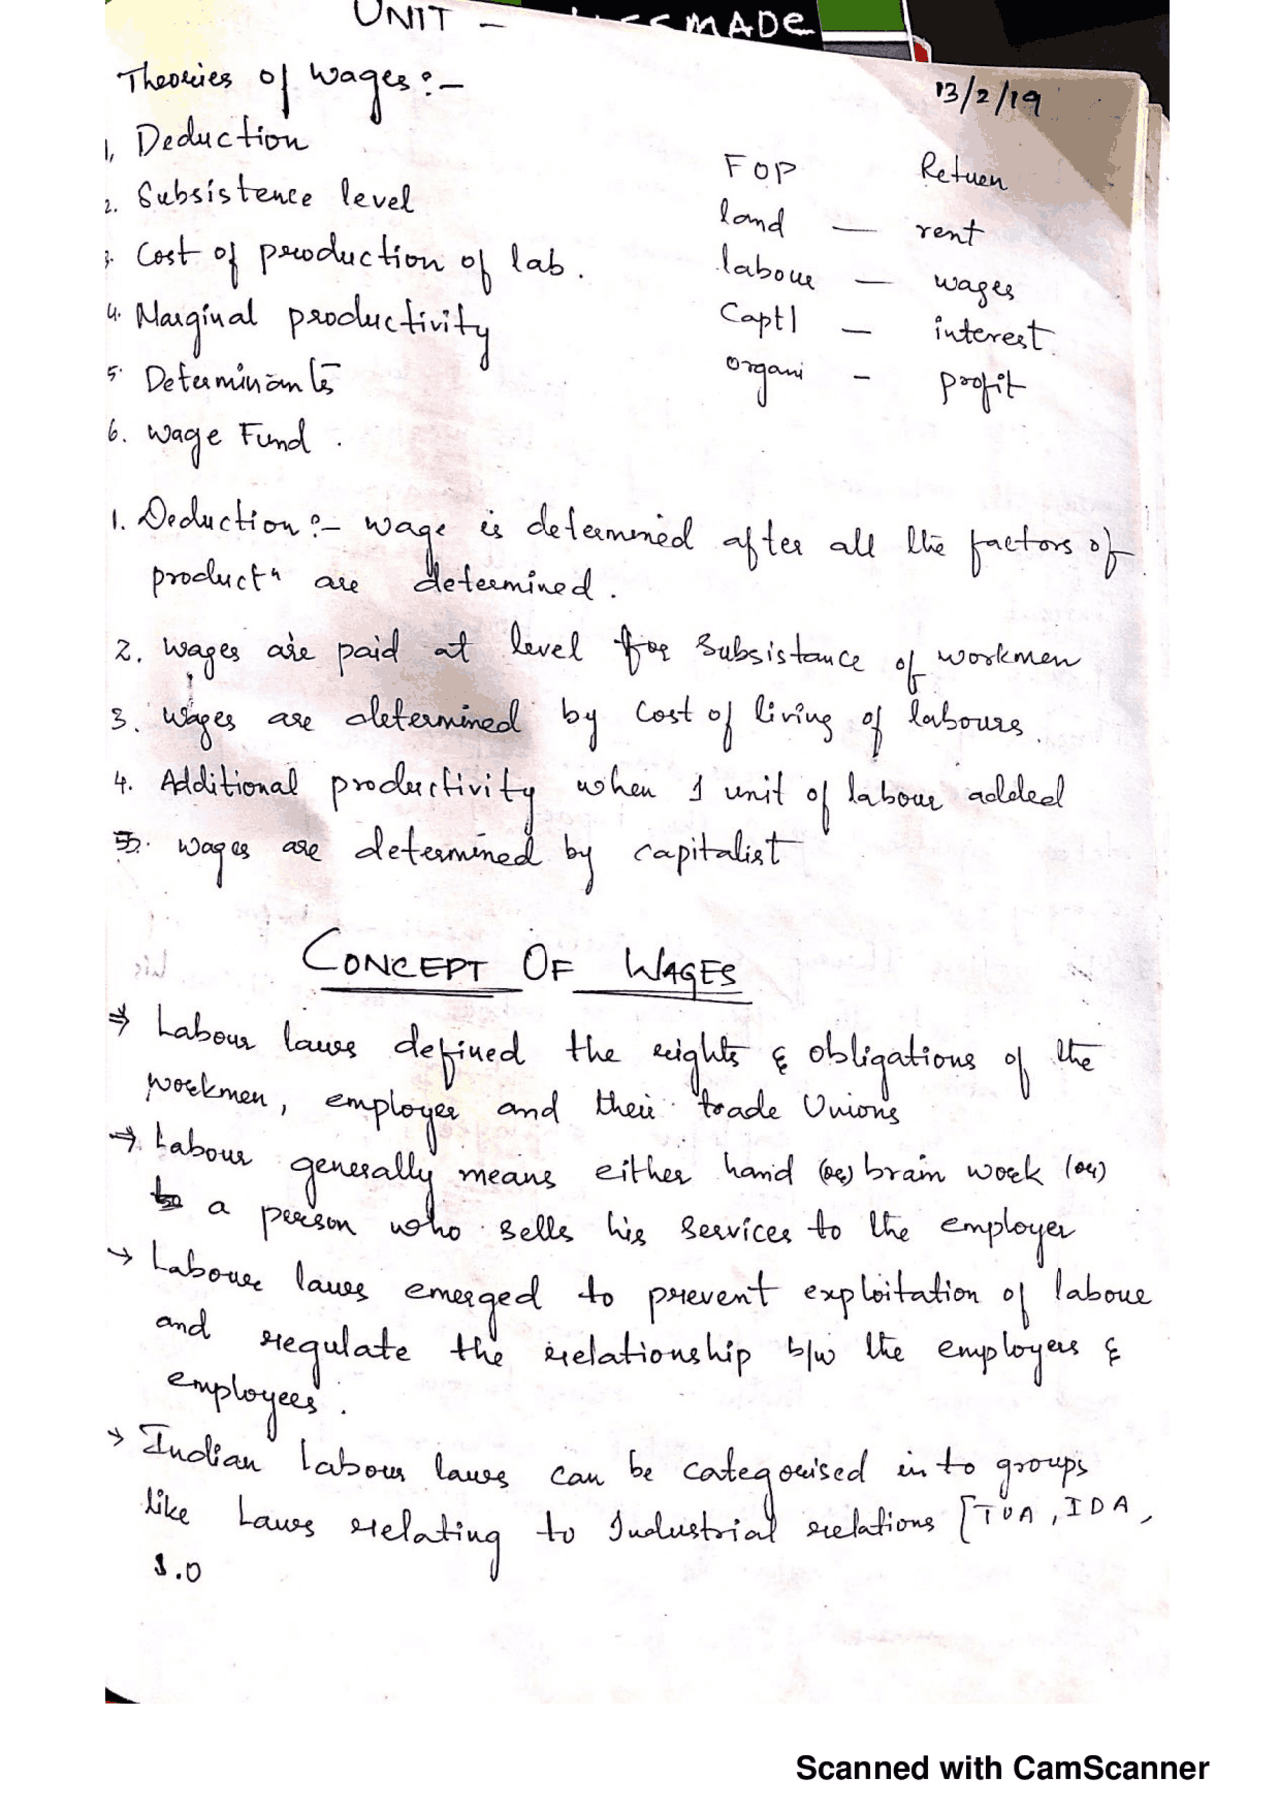 UNIT -
MADE
Theories of wages :-
13/2/19
1, Deduction
2. Subsistence level
3. Cost of production of lab.
4. Marginal productivity
5. Determinants
6. wage Fund .
FOP Return
land — rent
labour — wages
Captl — interest.
organi - profit
1. Deduction :- wage is determined after all the factors of
productn are determined .
2. wages are paid at level for Subsistance of workmen
3. wages are determined by cost of living of labours.
4. Additional productivity when 1 unit of labour added
5. wages are determined by capitalist
CONCEPT OF WAGES
⇒ Labour laws defined the rights & obligations of the
workmen, employer and their trade Unions
→ Labour generally means either hand (or) brain work (or)
a person who sells his services to the employer
→ Labour laws emerged to prevent exploitation of labour
and regulate the relationship b/w the employers &
employees .
→ Indian Labour laws can be categorised in to groups
like Laws relating to Industrial relations [TUA, IDA,
S.O
Scanned with CamScanner